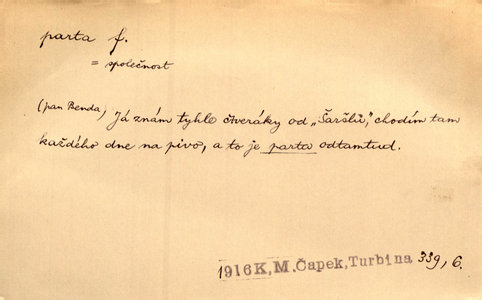 parta f.
= společnost
(pan Benda,) Já znám tyhle čtveráky od „Šaršlů," chodím tam
každého dne na pivo, a to je parta odtamtud.
1916 K, M. Čapek, Turbina 339, 6.